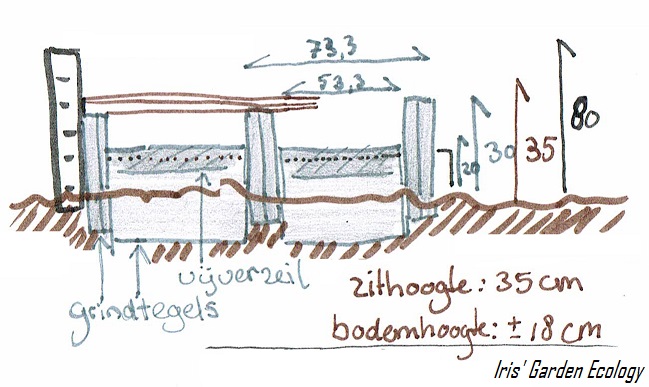 73,3
53,3
20 30 35 80
vijverzeil
grindtegels
zithoogte: 35 cm
bodemhoogte: ± 18 cm
Iris' Garden Ecology